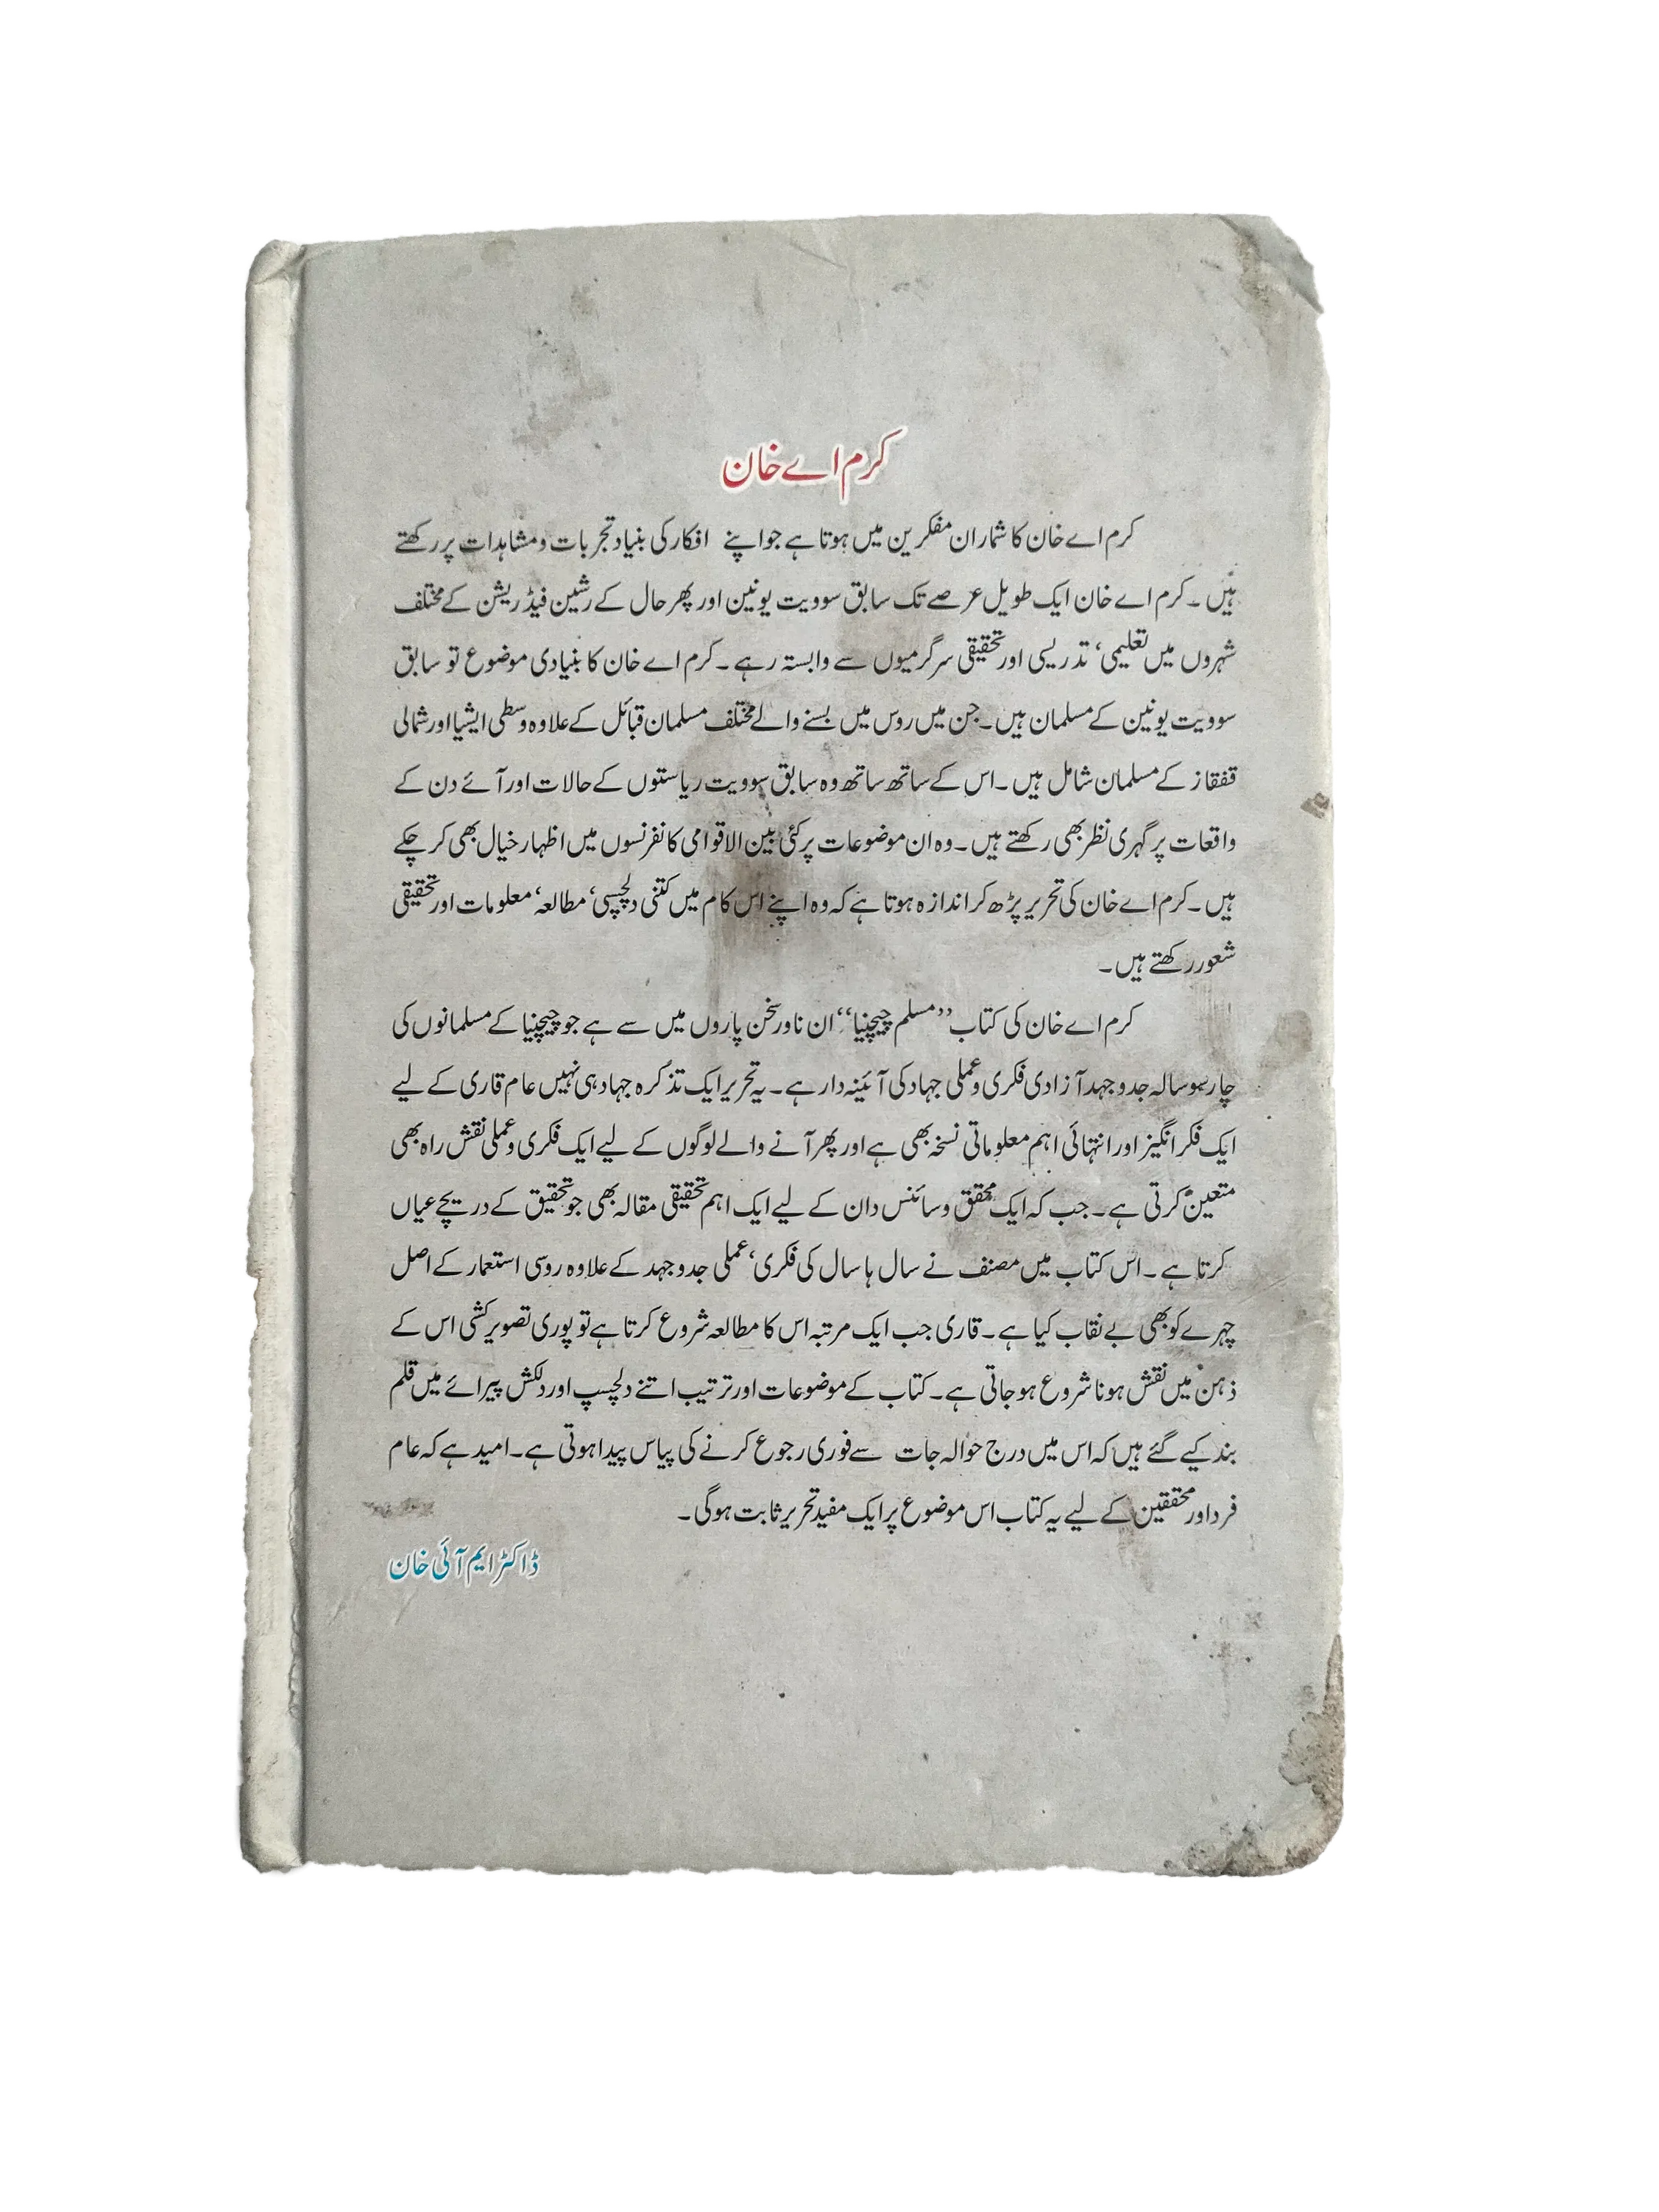 کرم اے خان
کرم اے خان کا شمار ان مفکرین میں ہوتا ہے جو اپنے افکار کی بنیاد تجربات و مشاہدات پر رکھتے
ہیں۔ کرم اے خان ایک طویل عرصے تک سابق سوویت یونین اور پھر حال کے رشین فیڈریشن کے مختلف
شہروں میں تعلیمی، تدریسی اور تحقیقی سرگرمیوں سے وابستہ رہے۔ کرم اے خان کا بنیادی موضوع تو سابق
سوویت یونین کے مسلمان ہیں۔ جن میں روس میں بسنے والے مختلف مسلمان قبائل کے علاوہ وسطی ایشیا اور شمالی
قفقاز کے مسلمان شامل ہیں۔ اس کے ساتھ ساتھ وہ سابق سوویت ریاستوں کے حالات اور آئے دن کے
واقعات پر گہری نظر بھی رکھتے ہیں۔ وہ ان موضوعات پر کئی بین الاقوامی کانفرنسوں میں اظہار خیال بھی کر چکے
ہیں۔ کرم اے خان کی تحریر پڑھ کر اندازہ ہوتا ہے کہ وہ اپنے اس کام میں کتنی دلچسپی، مطالعہ، معلومات اور تحقیقی
شعور رکھتے ہیں۔
کرم اے خان کی کتاب ’’مسلم چیچنیا‘‘ ان ناور سخن پاروں میں سے ہے جو چیچنیا کے مسلمانوں کی
چار سو سالہ جدوجہد آزادی فکری و عملی جہاد کی آئینہ دار ہے۔ یہ تحریر ایک تذکرہ جہاد ہی نہیں عام قاری کے لیے
ایک فکر انگیز اور انتہائی اہم معلوماتی نسخہ بھی ہے اور پھر آنے والے لوگوں کے لیے ایک فکری و عملی نقش راہ بھی
متعین کرتی ہے۔ جب کہ ایک محقق و سائنس دان کے لیے ایک اہم تحقیقی مقالہ بھی جو تحقیق کے دریچے عیاں
کرتا ہے۔ اس کتاب میں مصنف نے سال ہا سال کی فکری، عملی جدوجہد کے علاوہ روسی استعمار کے اصل
چہرے کو بھی بے نقاب کیا ہے۔ قاری جب ایک مرتبہ اس کا مطالعہ شروع کرتا ہے تو پوری تصویر کشی اس کے
ذہن میں نقش ہونا شروع ہو جاتی ہے۔ کتاب کے موضوعات اور ترتیب اتنے دلچسپ اور دلکش پیرائے میں قلم
بند کیے گئے ہیں کہ اس میں درج حوالہ جات سے فوری رجوع کرنے کی پیاس پیدا ہوتی ہے۔ امید ہے کہ عام
فرد اور محققین کے لیے یہ کتاب اس موضوع پر ایک مفید تحریر ثابت ہوگی۔
ڈاکٹر ایم آئی خان